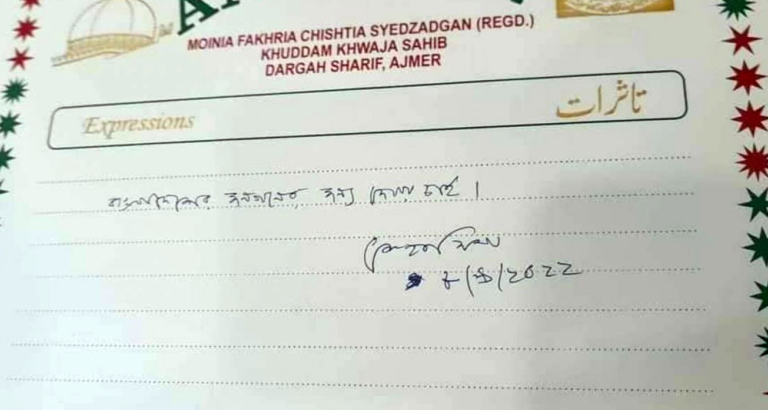 MOINIA FAKHRIA CHISHTIA SYEDZADGAN (REGD.)
KHUDDAM KHWAJA SAHIB
DARGAH SHARIF, AJMER
Expressions تاثرات
বাংলাদেশের জনগণের জন্য দোয়া চাই ।
৮/৯/২০২২